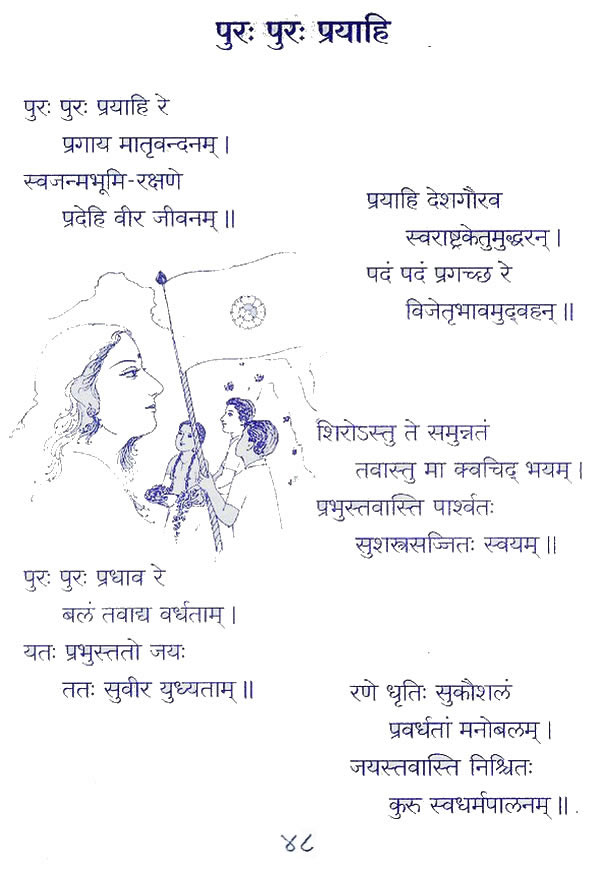 पुरः पुरः प्रयाहि
पुरः पुरः प्रयाहि रे
प्रगाय मातृवन्दनम् ।
स्वजन्मभूमि-रक्षणे
प्रदेहि वीर जीवनम् ॥
प्रयाहि देशगौरव
स्वराष्ट्रकेतुमुद्धरन् ।
पदं पदं प्रगच्छ रे
विजेतृभावमुद्वहन् ॥
शिरोऽस्तु ते समुन्नतं
तवास्तु मा क्वचिद् भयम् ।
प्रभुस्तवास्ति पार्श्वतः
सुशस्त्रसज्जितः स्वयम् ॥
पुरः पुरः प्रधाव रे
बलं तवाद्य वर्धताम् ।
यतः प्रभुस्ततो जयः
ततः सुवीर युध्यताम् ॥
रणे धृतिः सुकौशलं
प्रवर्धतां मनोबलम् ।
जयस्तवास्ति निश्चितः
कुरु स्वधर्मपालनम् ॥
४८